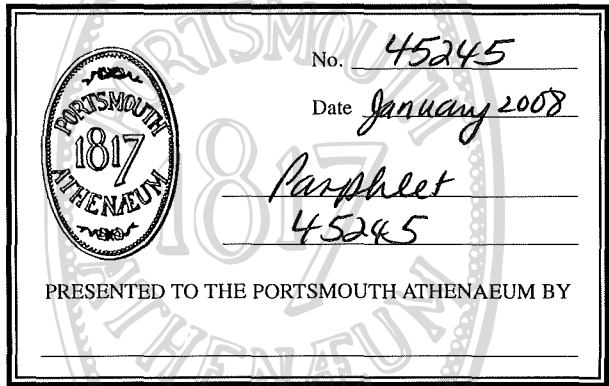 PORTSMOUTH
1817
ATHENÆUM
No. 45245
Date January 2008
Pamphlet
45245
PRESENTED TO THE PORTSMOUTH ATHENAEUM BY